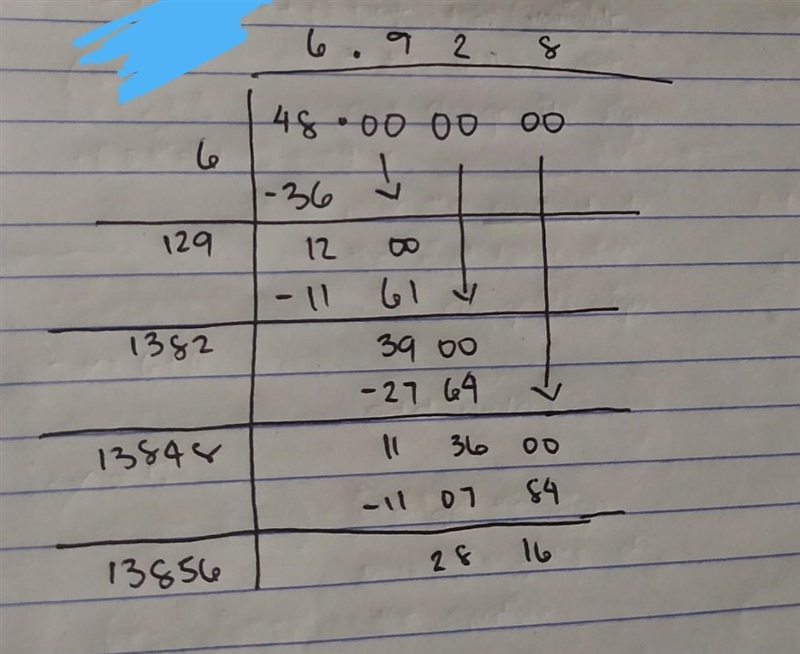 6 . 9 2 . 8
48 . 00 00 00
6
-36
129 12 00
-11 61
1382 39 00
-27 64
13848 11 36 00
-11 07 84
13856 28 16